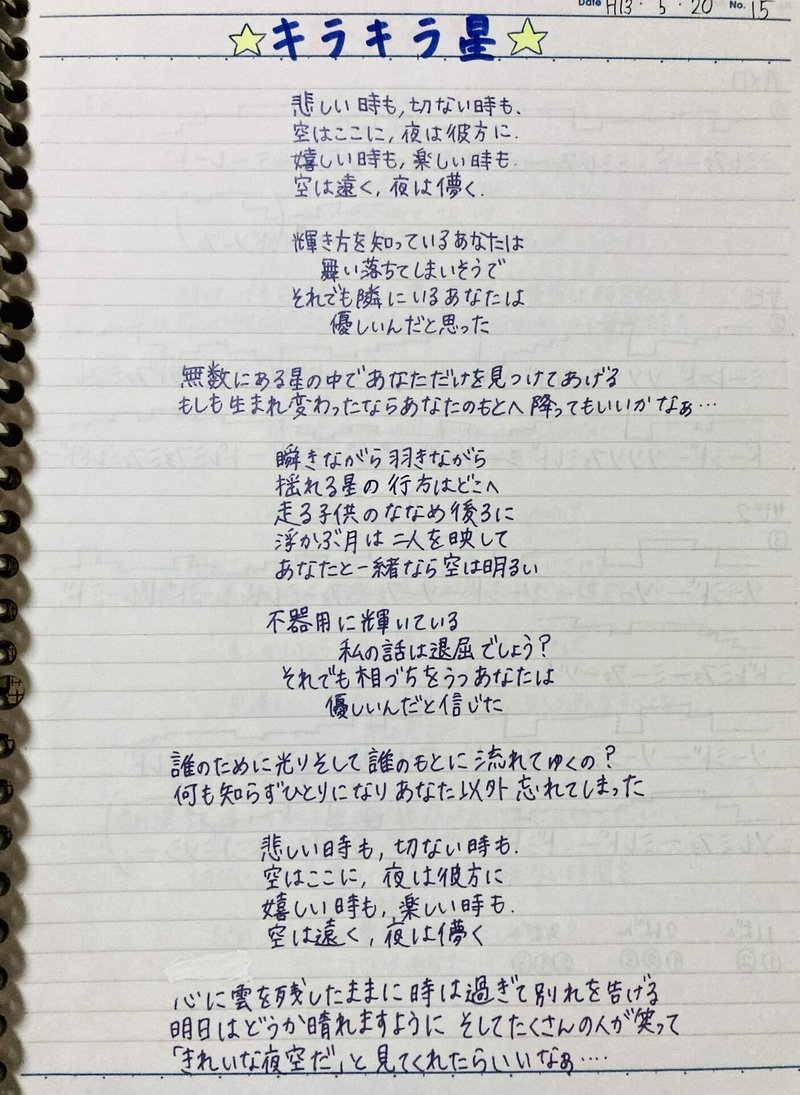 Date H13・5・20 No. 15
☆キラキラ星☆
悲しい時も,切ない時も.
空はここに,夜は彼方に.
嬉しい時も,楽しい時も.
空は遠く,夜は儚く.
輝き方を知っているあなたは
舞い落ちてしまいそうで
それでも隣にいるあなたは
優しいんだと思った
無数にある星の中であなただけを見つけてあげる
もしも生まれ変わったならあなたのもとへ降ってもいいかなぁ…
瞬きながら羽きながら
揺れる星の行方はどこへ
走る子供のななめ後ろに
浮かぶ月は二人を映して
あなたと一緒なら空は明るい
不器用に輝いている
私の話は退屈でしょう?
それでも相づちをうつあなたは
優しいんだと信じた
誰のために光りそして誰のもとに流れてゆくの?
何も知らずひとりになりあなた以外忘れてしまった
悲しい時も,切ない時も.
空はここに,夜は彼方に
嬉しい時も,楽しい時も.
空は遠く,夜は儚く
心に雲を残したままに時は過ぎて別れを告げる
明日はどうか晴れますように そしてたくさんの人が笑って
「きれいな夜空だ」と見てくれたらいいなぁ‥‥